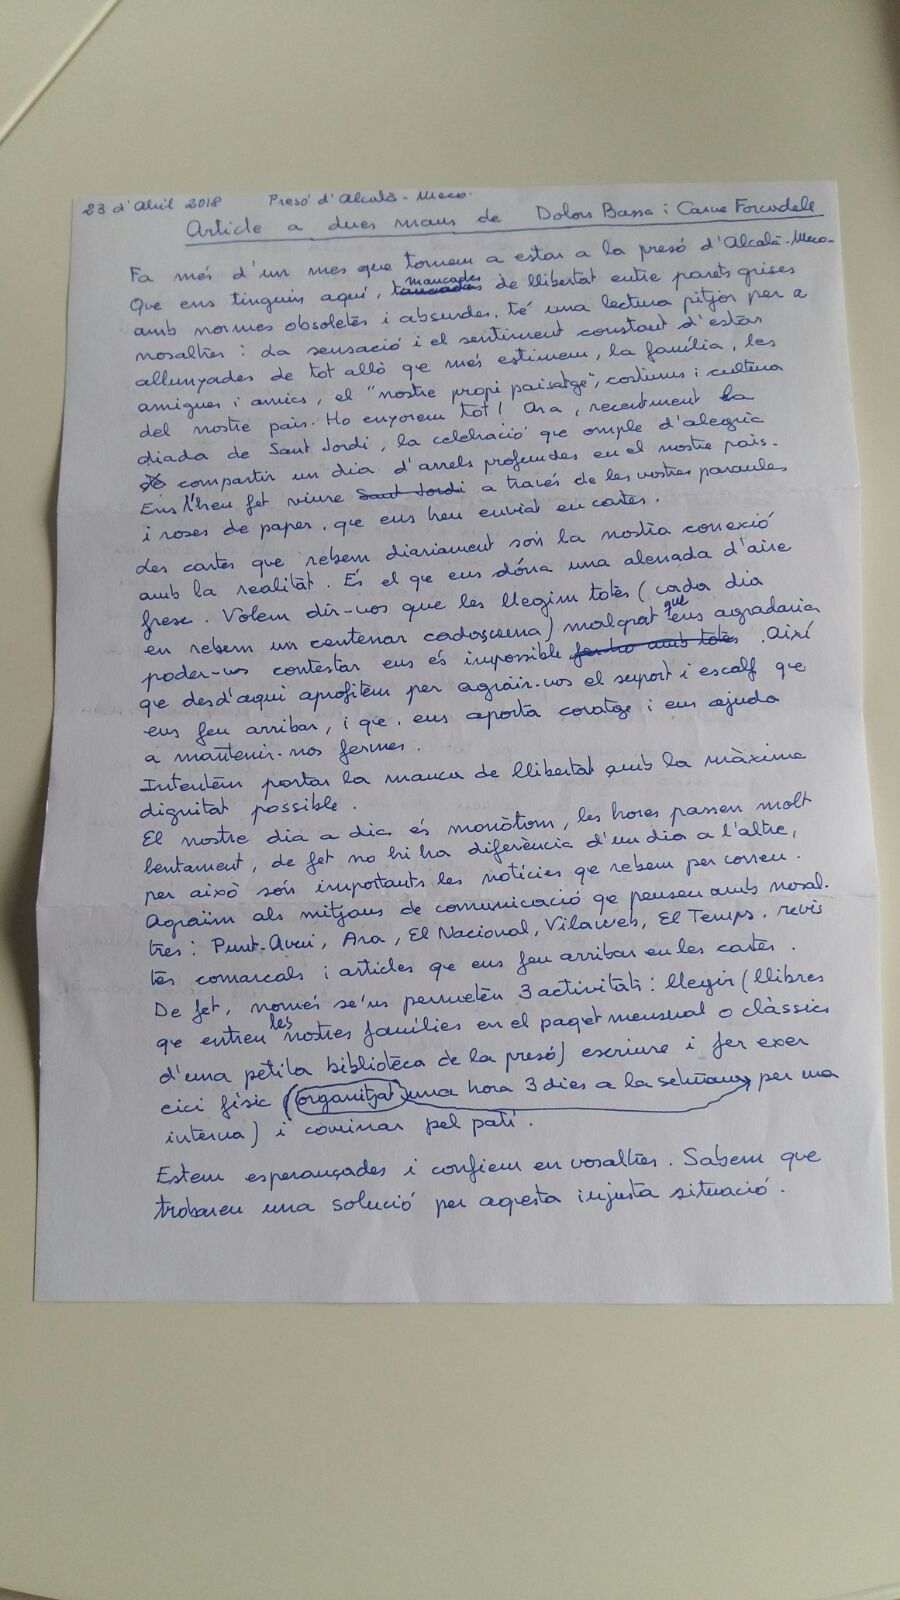 23 d'Abril 2018 Presó d'Alcalà-Meco.
Article a dues mans de Dolors Bassa i Carme Forcadell
Fa més d'un mes que tornem a estar a la presó d'Alcalà-Meco.
Que ens tinguin aquí, tancades mancades de llibertat entre parets grises
amb normes obsoletes i absurdes. té una lectura pitjor per a
nosaltres: La sensació i el sentiment constant d'estar
allunyades de tot allò qe més estimem, la família, les
amigues i amics, el "nostre propi paisatge", costums i cultura
del nostre país. Ho enyorem tot! Ara, recentment la
diada de Sant Jordi, la celebració qe omple d'alegria
compartir un dia d'arrels profundes en el nostre país.
Ens l'heu fet viure Sant Jordi a través de les vostres paraules
i roses de paper. que ens heu enviat en cartes.
Les cartes que rebem diariament són la nostra conexió
amb la realitat. És el qe ens dóna una alenada d'aire
fresc. Volem dir-vos que les llegim totes (cada dia
en rebem un centenar cadascuna) malgrat que ens agradaria
poder-vos contestar ens és impossible fer-ho amb totes. Així
que desd'aqui aprofitem per agrair-vos el suport i escalf que
ens feu arribar, i qe. ens aporta coratge i ens ajuda
a mantenir-nos fermes.
Intentem portar la manca de llibertat amb la màxima
dignitat possible.
El nostre dia a dia és monòtom, les hores passen molt
lentament, de fet no hi ha diferència d'un dia a l'altre,
per això són importants les notícies qe rebem per correu.
Agraïm als mitjans de comunicació qe pensen amb nosal.
tres: Punt-Avui, Ara, El Nacional, Vilaweb, El Temps. revis
tes comarcals i articles que ens feu arribar en les cartes.
De fet, només se'ns permeten 3 activitats: llegir (llibres
qe entren les nostres famílies en el paqet mensual o clàssics
d'una petita biblioteca de la presó) escriure i fer exer
cici físic (organitzat una hora 3 dies a la setmana, per una
interna) i caminar pel pati.
Estem esperançades i confiem en vosaltres. Sabem que
trobareu una solució per aqesta injusta situació.